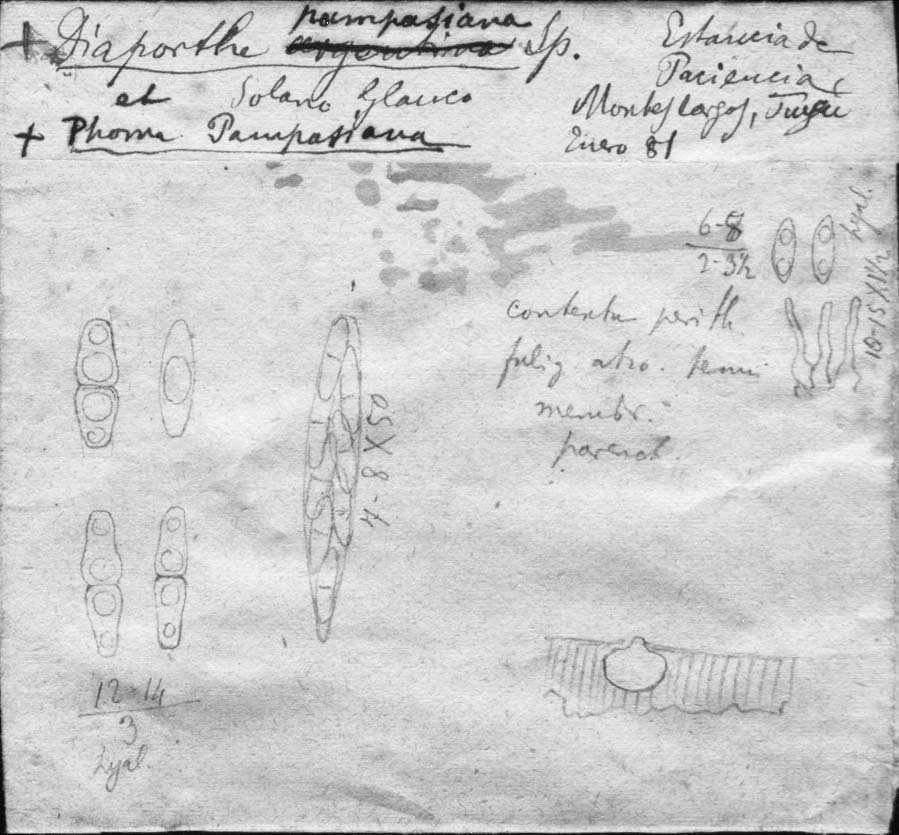 + Diaporthe pampasiana Sp.
et Solano Glauco
+ Phoma Pampasiana
Estancia de
Paciencia,
Montes largos,
Enero 81
6-8
2-3½
hyal.
10-15 X 1½
contextu perith.
fulig atro. tenui
membr.
parench.
7-8 X 50
12-14
3
hyal.